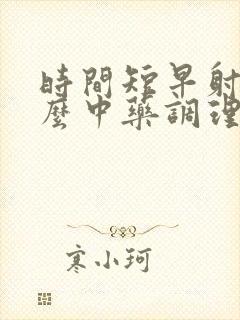 時間短早射
麼中藥調理
寒小珂